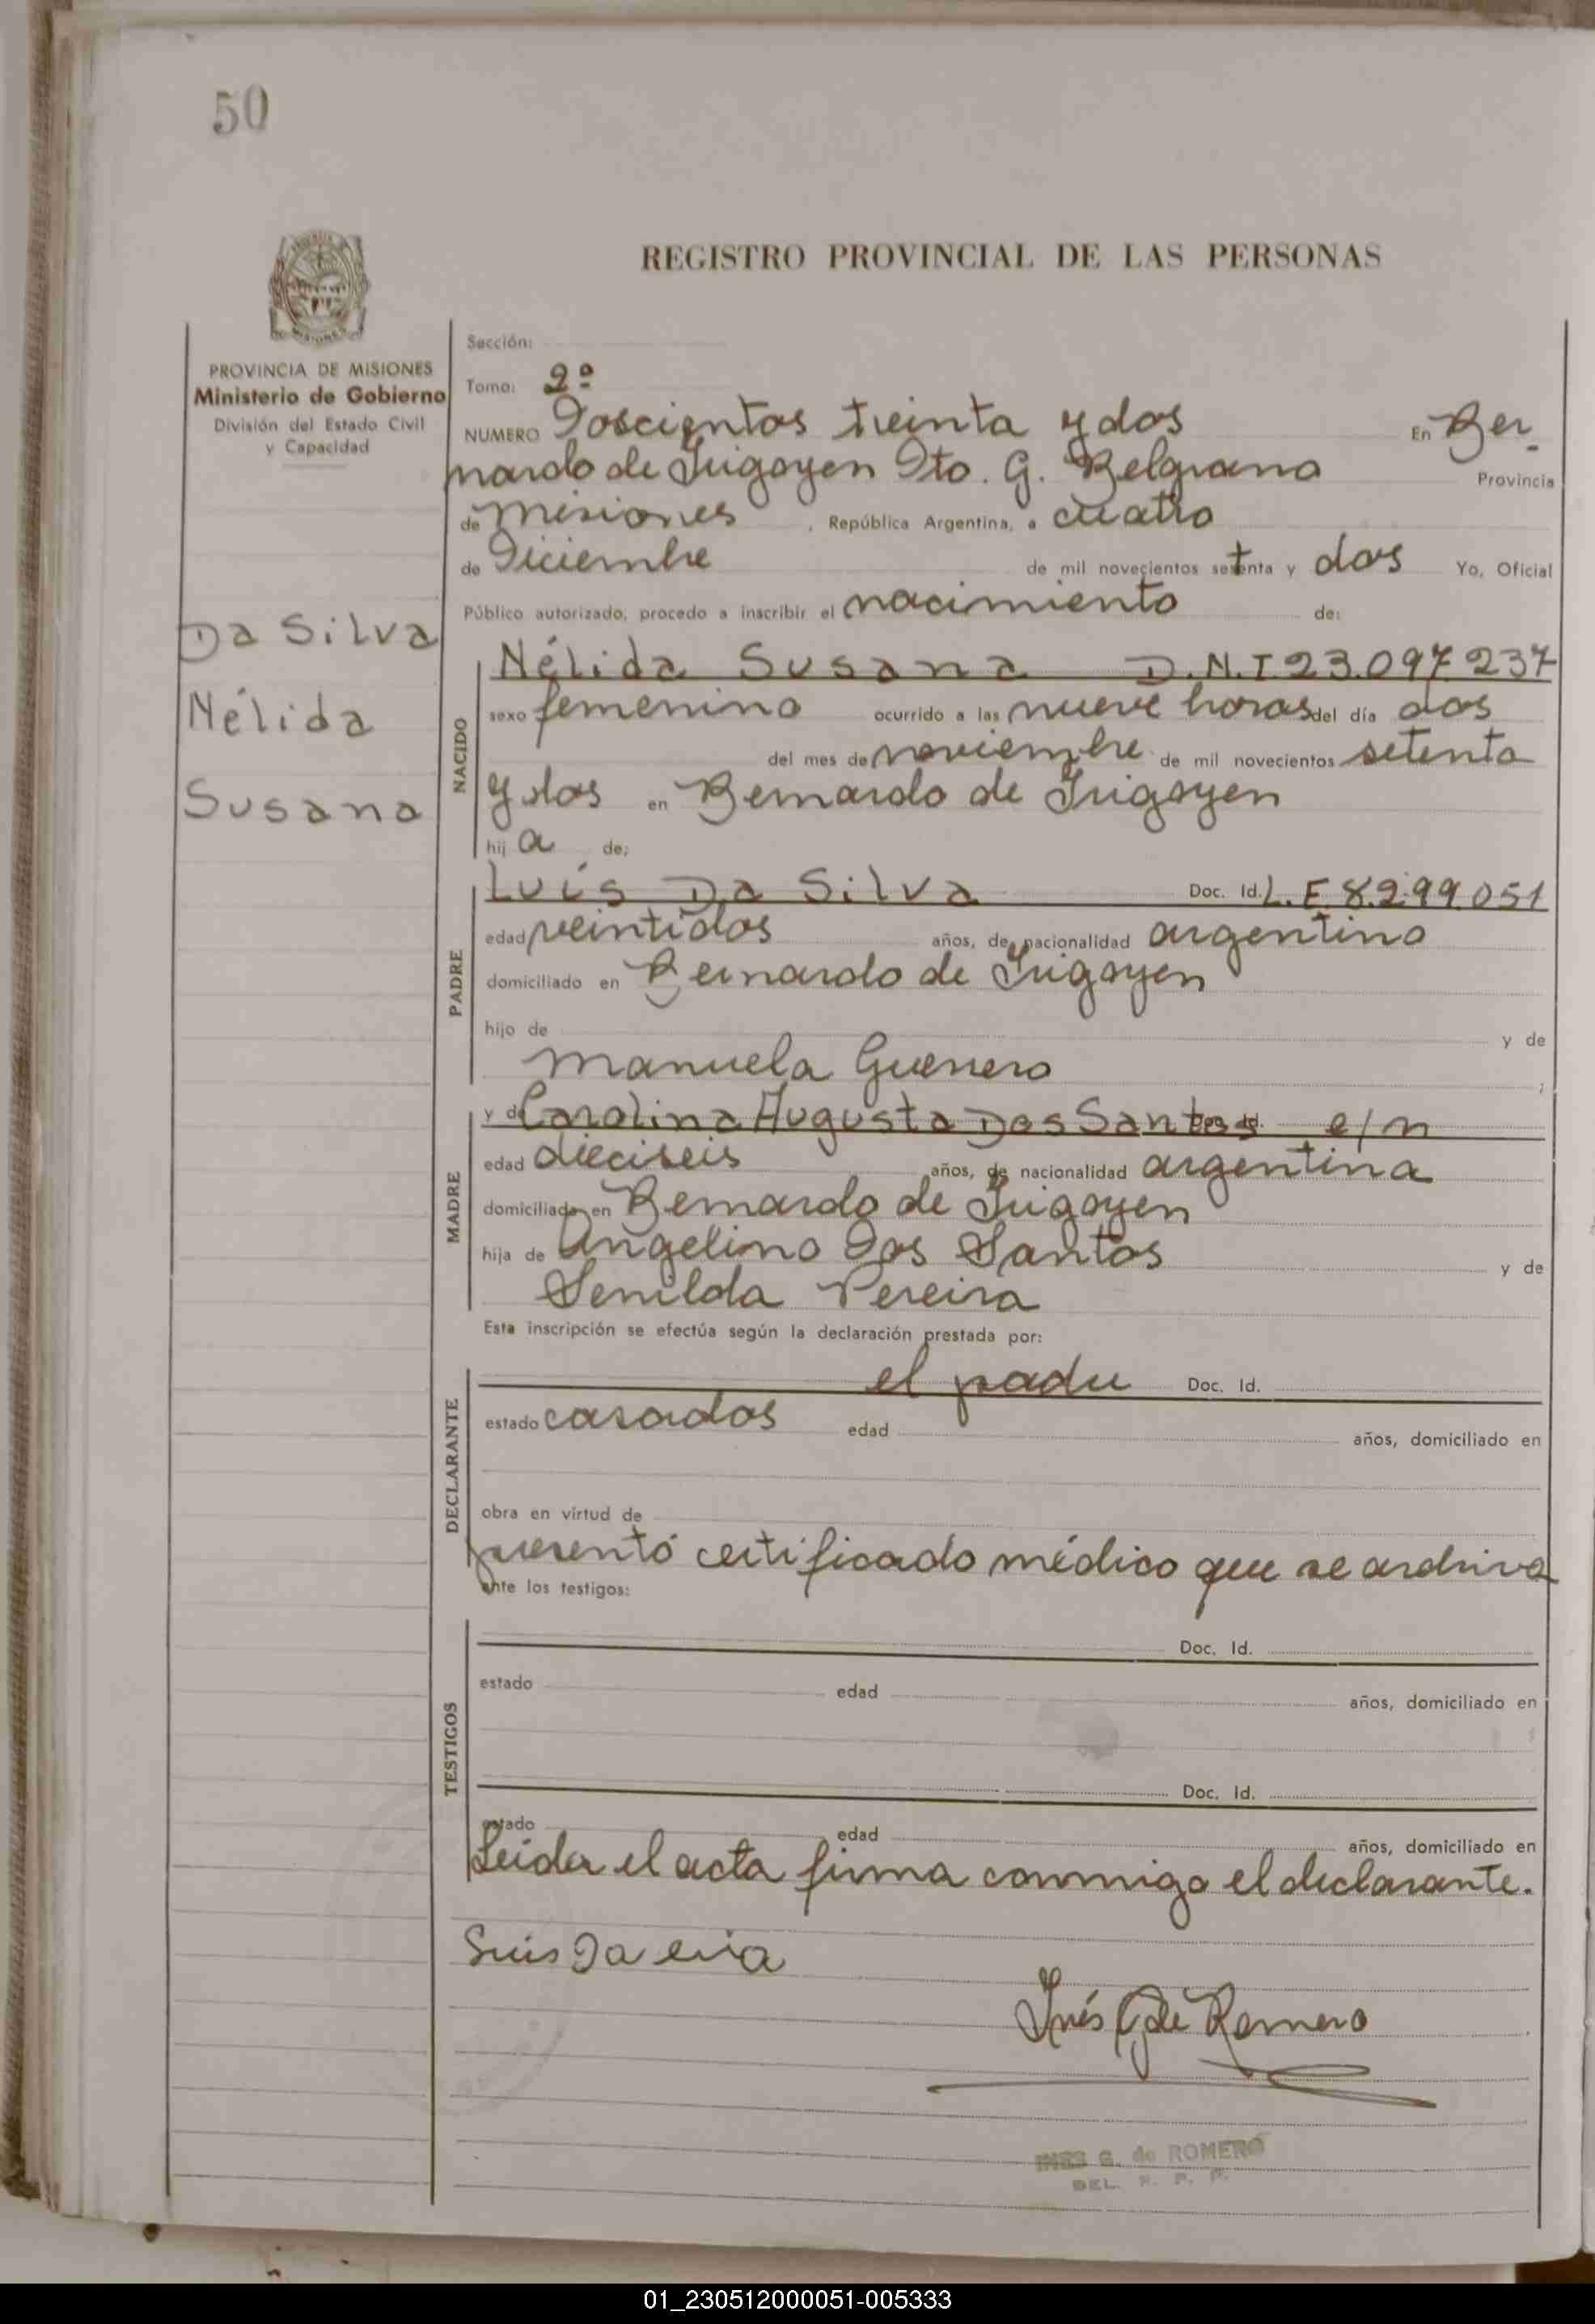 50
REGISTRO PROVINCIAL DE LAS PERSONAS
PROVINCIA DE MISIONES
Ministerio de Gobierno
División del Estado Civil
y Capacidad
Da Silva
Nélida
Susana
Sección:
Tomo: 2º
NUMERO Doscientos treinta y dos En Ber
nardo de Irigoyen Dto. G. Belgrano Provincia
de Misiones, República Argentina, a cuatro
de Diciembre de mil novecientos setenta y dos Yo, Oficial
Público autorizado, procedo a inscribir el nacimiento de:
NACIDO
Nélida Susana D.N.I 23.097.237
sexo femenino ocurrido a las nueve horas del día dos
del mes de noviembre de mil novecientos setenta
y dos en Bernardo de Irigoyen
hij a de:
PADRE
Luis Da Silva Doc. Id. L.E 8.299.051
edad veintidos años, de nacionalidad argentino
domiciliado en Bernardo de Irigoyen
hijo de y de
Manuela Guerrero ;
MADRE
y de Carolina Augusta Dos Santos e/n
edad dieciseis años, de nacionalidad argentina
domiciliada en Bernardo de Irigoyen
hija de Angelino Dos Santos y de
Senilda Pereira
Esta inscripción se efectúa según la declaración prestada por:
DECLARANTE
el padre Doc. Id.
estado casados edad años, domiciliado en
obra en virtud de
presentó certificado médico que se archiva
ante los testigos:
TESTIGOS
Doc. Id.
estado edad años, domiciliado en
Doc. Id.
estado edad años, domiciliado en
Leída el acta firma conmigo el declarante.
Luis Da
Inés G de Romero
INES G. de ROMERO
DEL. R. P. P.
01_230512000051-005333